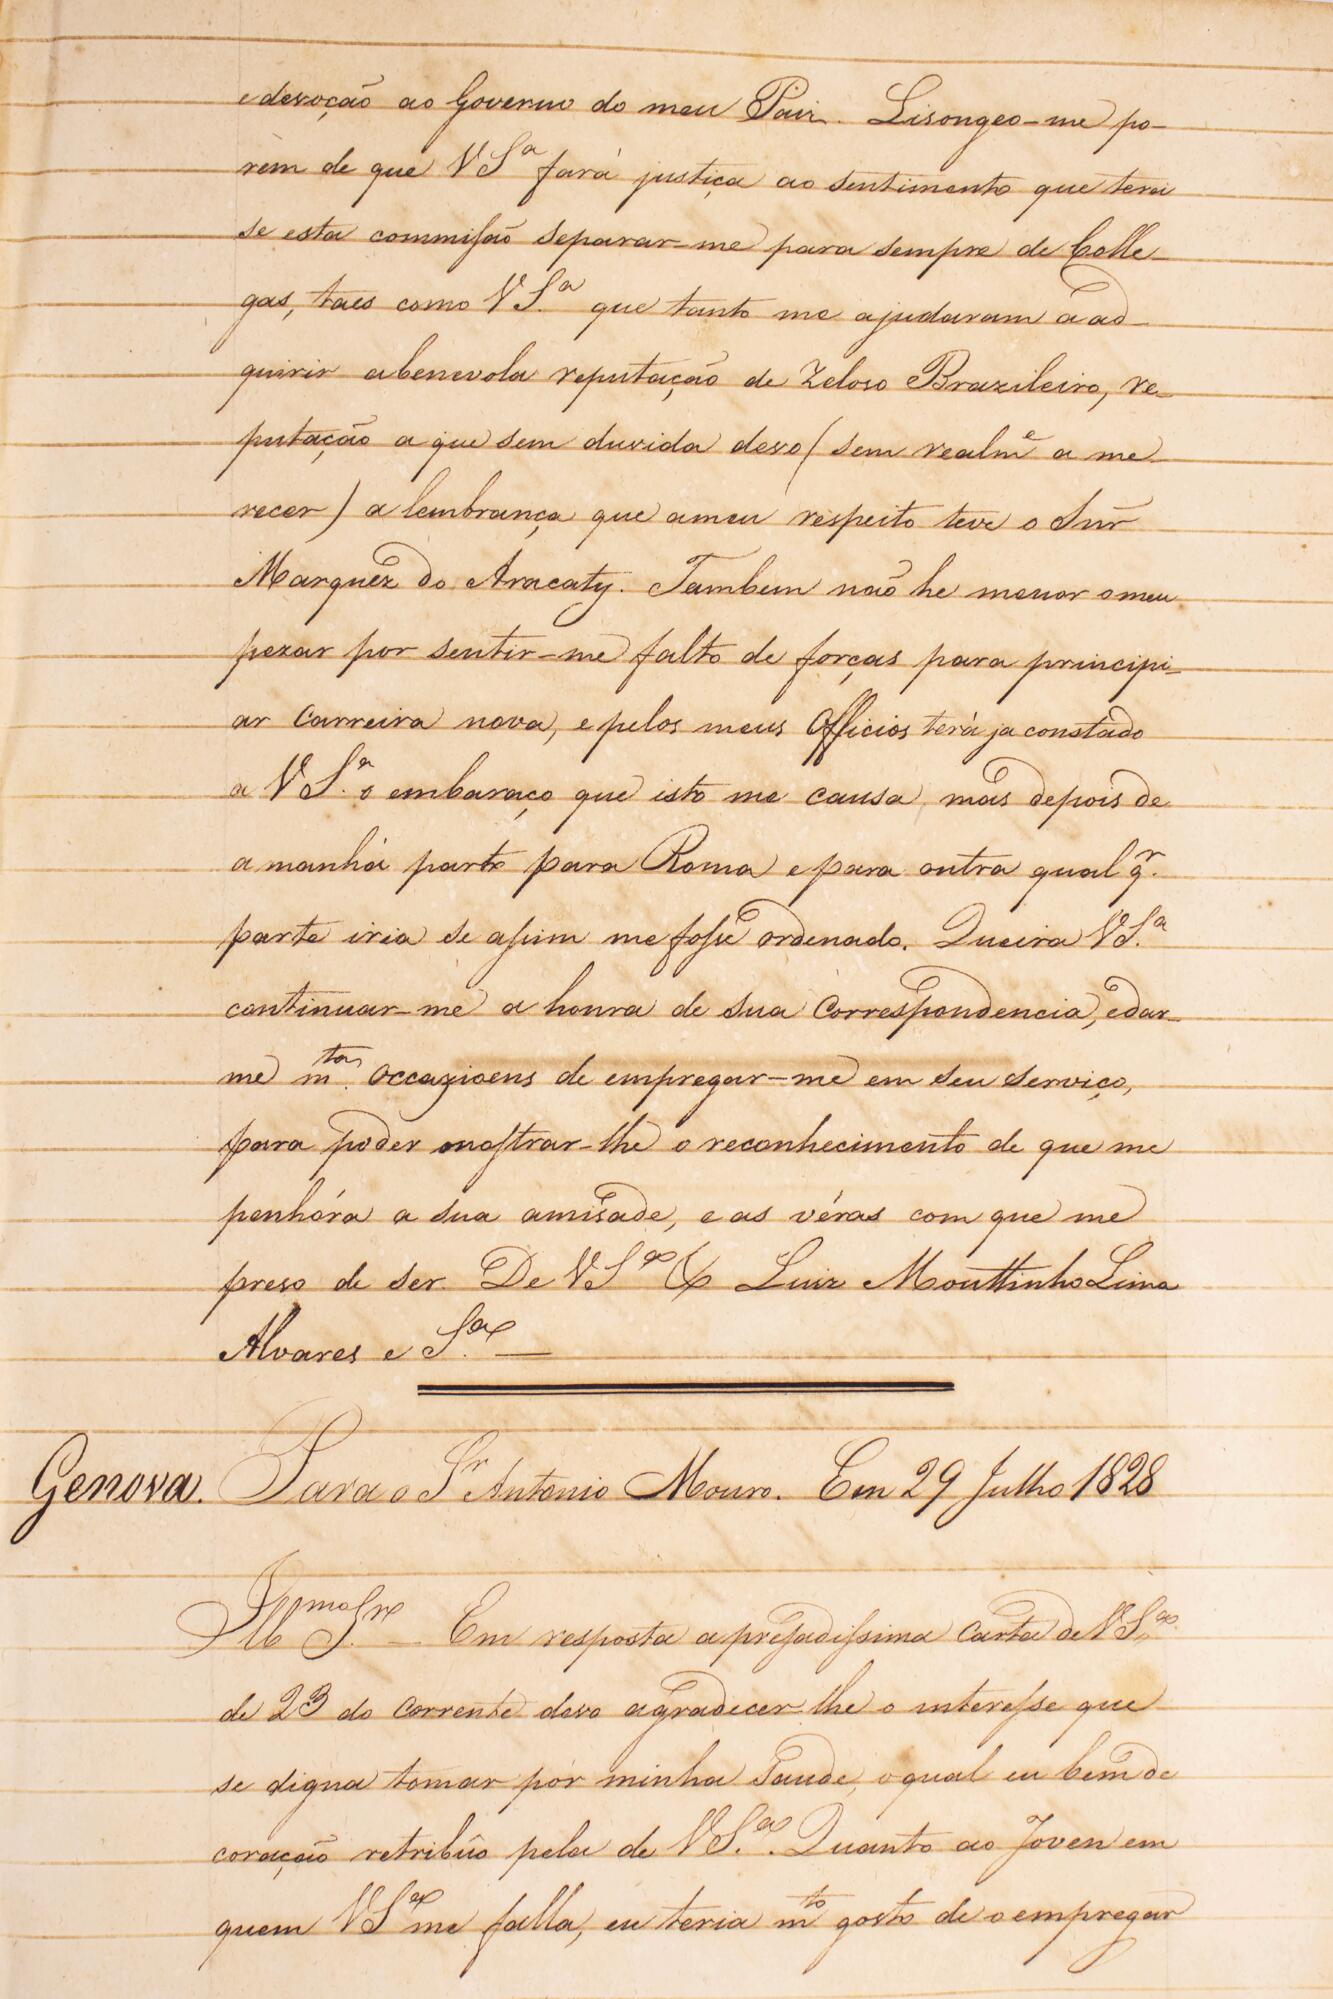 e devoção ao Governo do meu Paiz. Lisongeo-me po-
rem de que V S.ª fará justiça ao sentimento que terei
se esta commissão separar-me para sempre de Colle-
gas, taes como V S.ª que tanto me ajudaram a ad-
quirir a benevola reputação de Zeloso Brazileiro, re-
putação a que sem duvida devo (sem realm.e a me
recer) a lembrança que a meu respeito teve o Snr̃
Marquez do Aracaty. Tambem não he menor o meu
pezar por sentir-me falto de forças para principi-
ar Carreira nova, e pelos meus Officios terá ja constado
a V S.ª o embaraço que isto me causa, mas depois de
amanhã parto para Roma e para outra qual q.r
parte iria se assim me fosse ordenado. Queira V S.ª
continuar-me a honra de sua Correspondencia, e dar-
me m.tas occazioens de empregar-me em seu serviço,
para poder mostrar-lhe o reconhecimento de que me
penhóra a sua amisade, e as véras com que me
preso de ser. De V S.ª & Luiz Mouttinho Lima
Alvares e S.ª —
Genova. Para o S.r Antonio Mouro. Em 29 Julho 1828
Ill.mo Snr. — Em resposta a presadissima Carta de V S.ª
de 23 do corrente devo agradecer-lhe o interesse que
se digna tomar por minha Saude, o qual eu bem de
coração retribûo pela de V S.ª. Quanto ao Joven em
quem V S.ª me falla, eu teria m.to gosto de o empregar